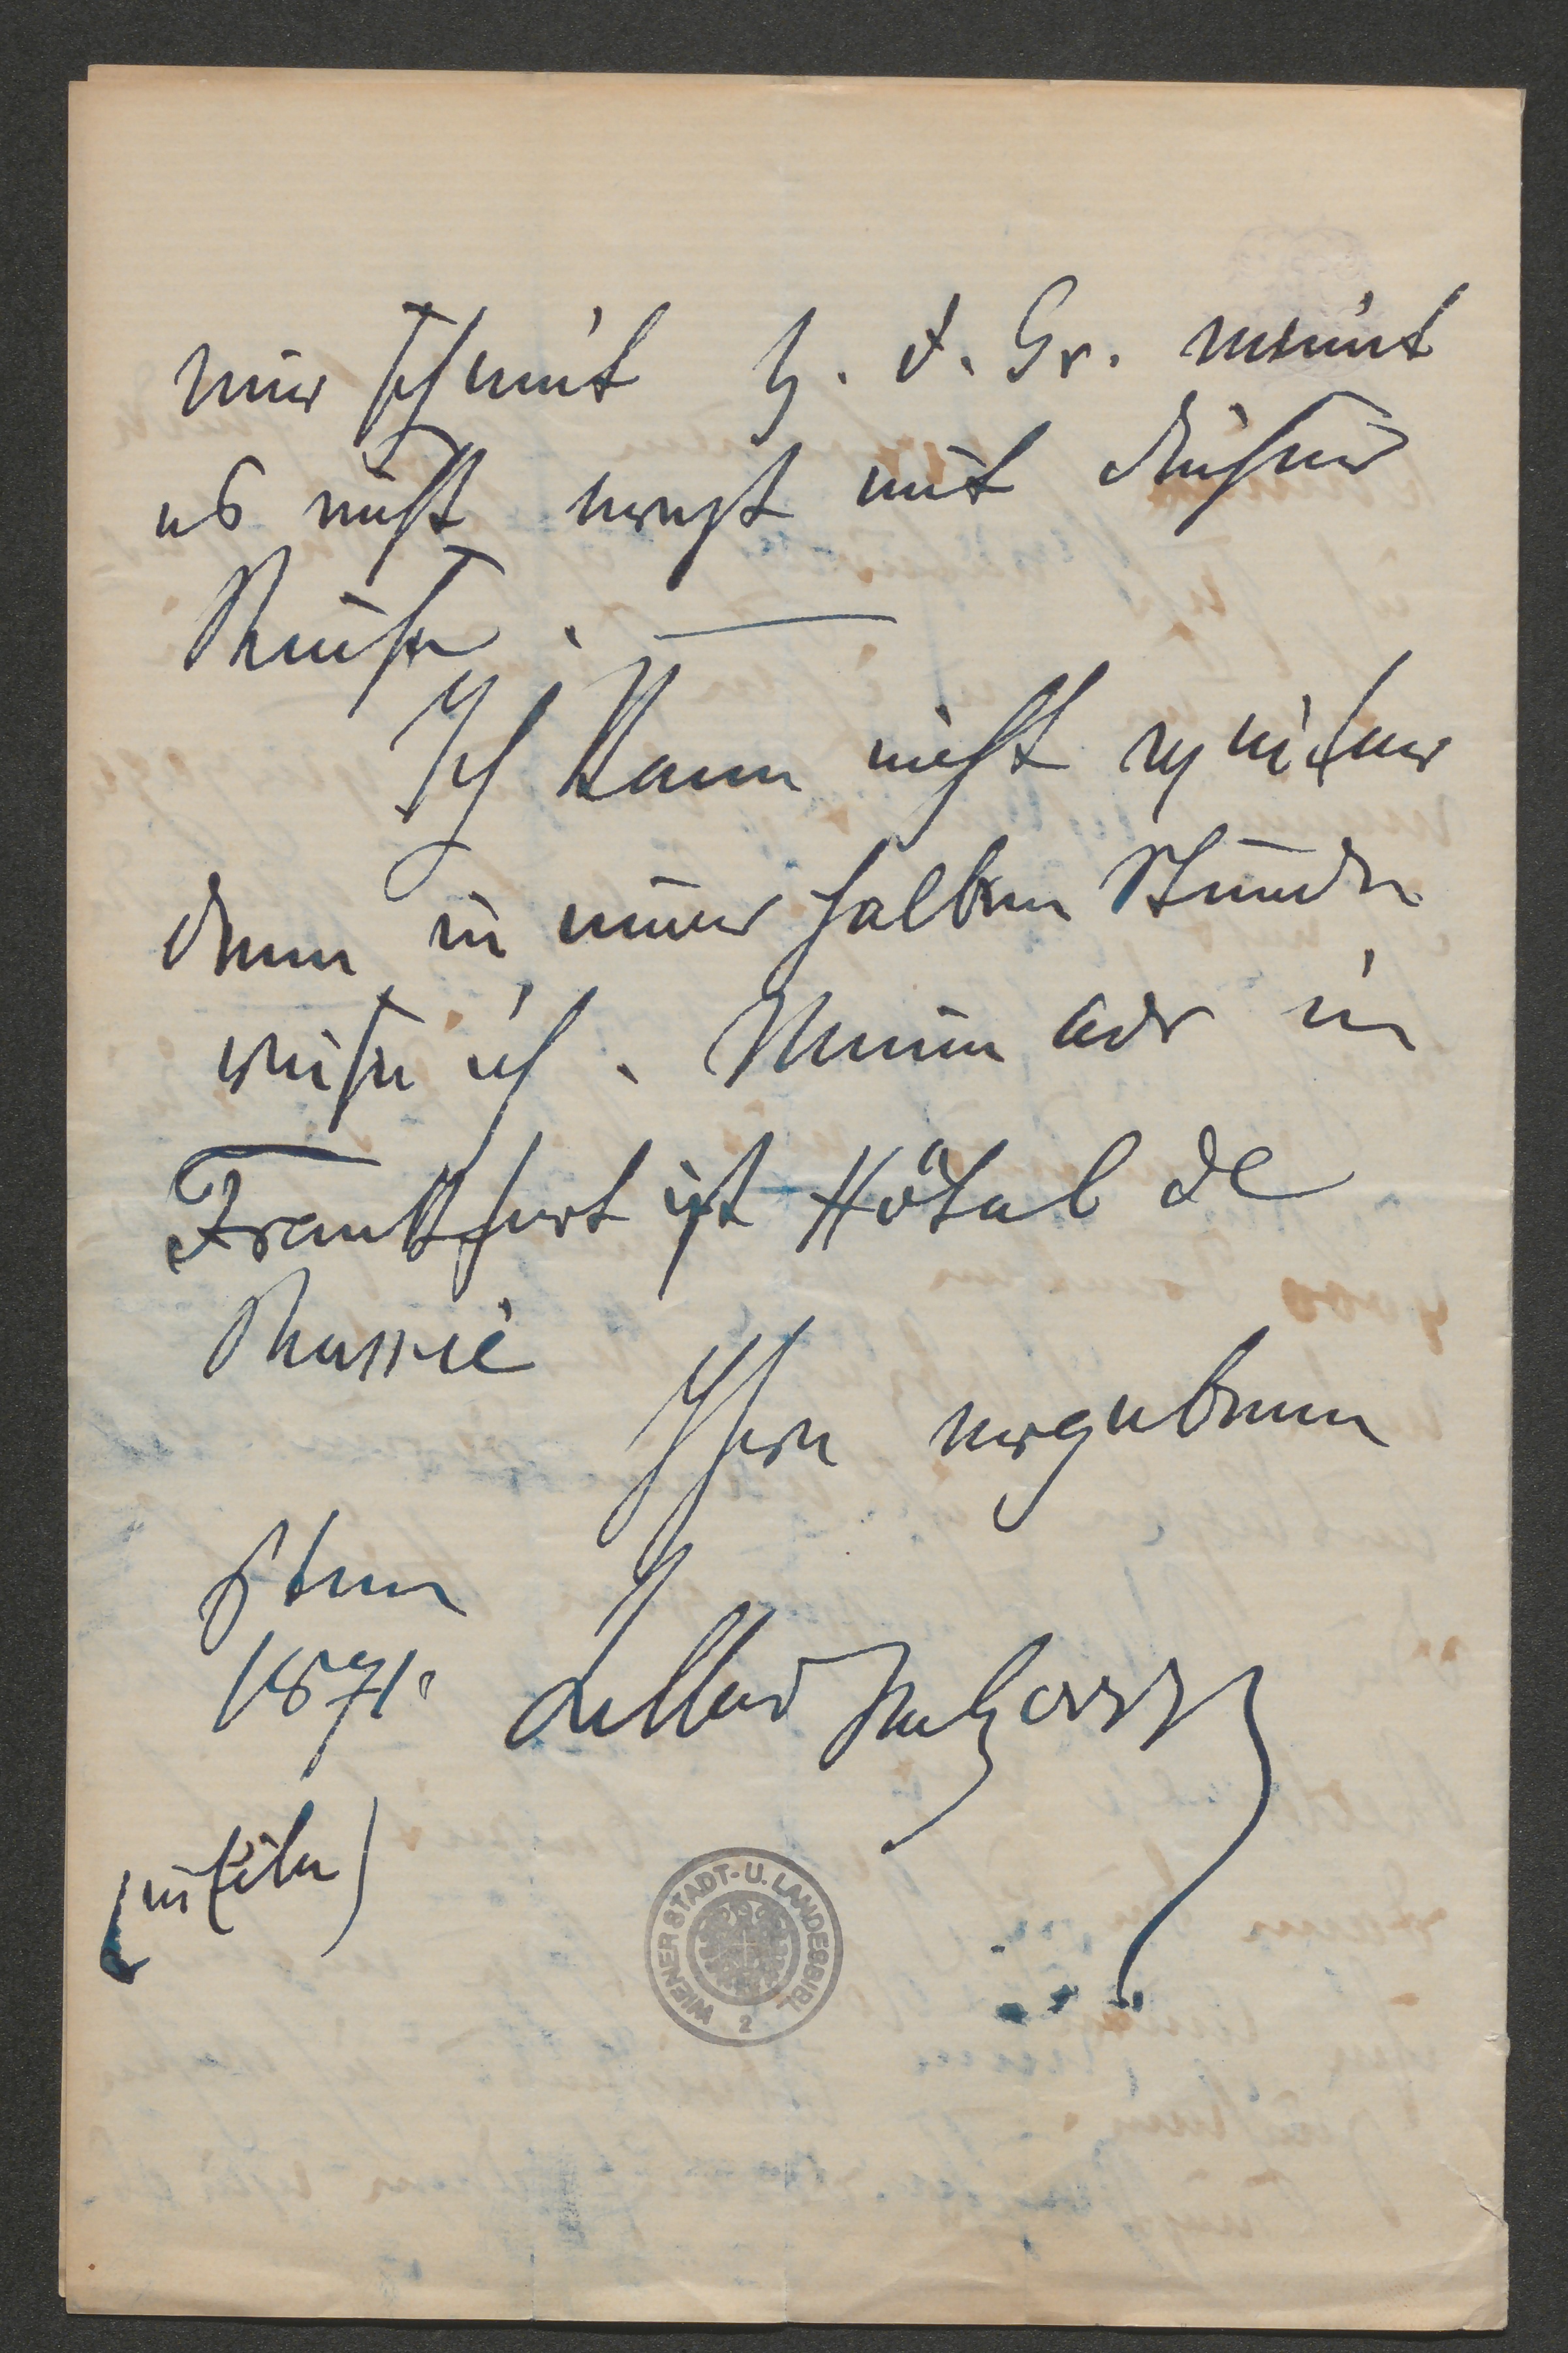 mir scheint H. d. Gr. meint
es nicht ernst mit dieser
Reise. —
Ich kann nicht
denn in einer halben Stunde
reise ich. Meine adr in
Frankfurt ist Hôtel de
Russie
Ihre ergebene
1871.
(in Eile)
WIENER STADT- U. LANDESBIBL.
2